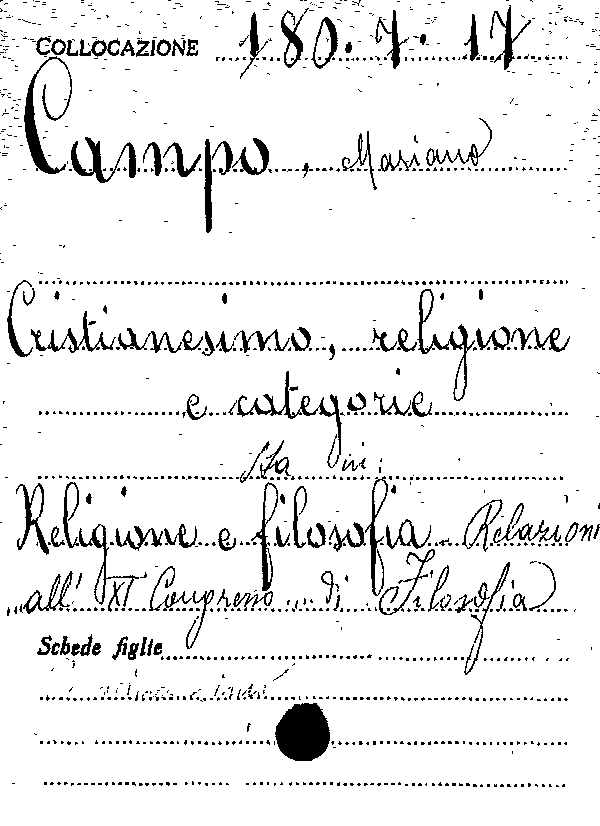 COLLOCAZIONE 180.7.17
Campo, Mariano
Cristianesimo, religione
e categorie
Sta in:
Religione e filosofia - Relazioni
...all' XI Congresso ... di Filosofia
Schede figlie